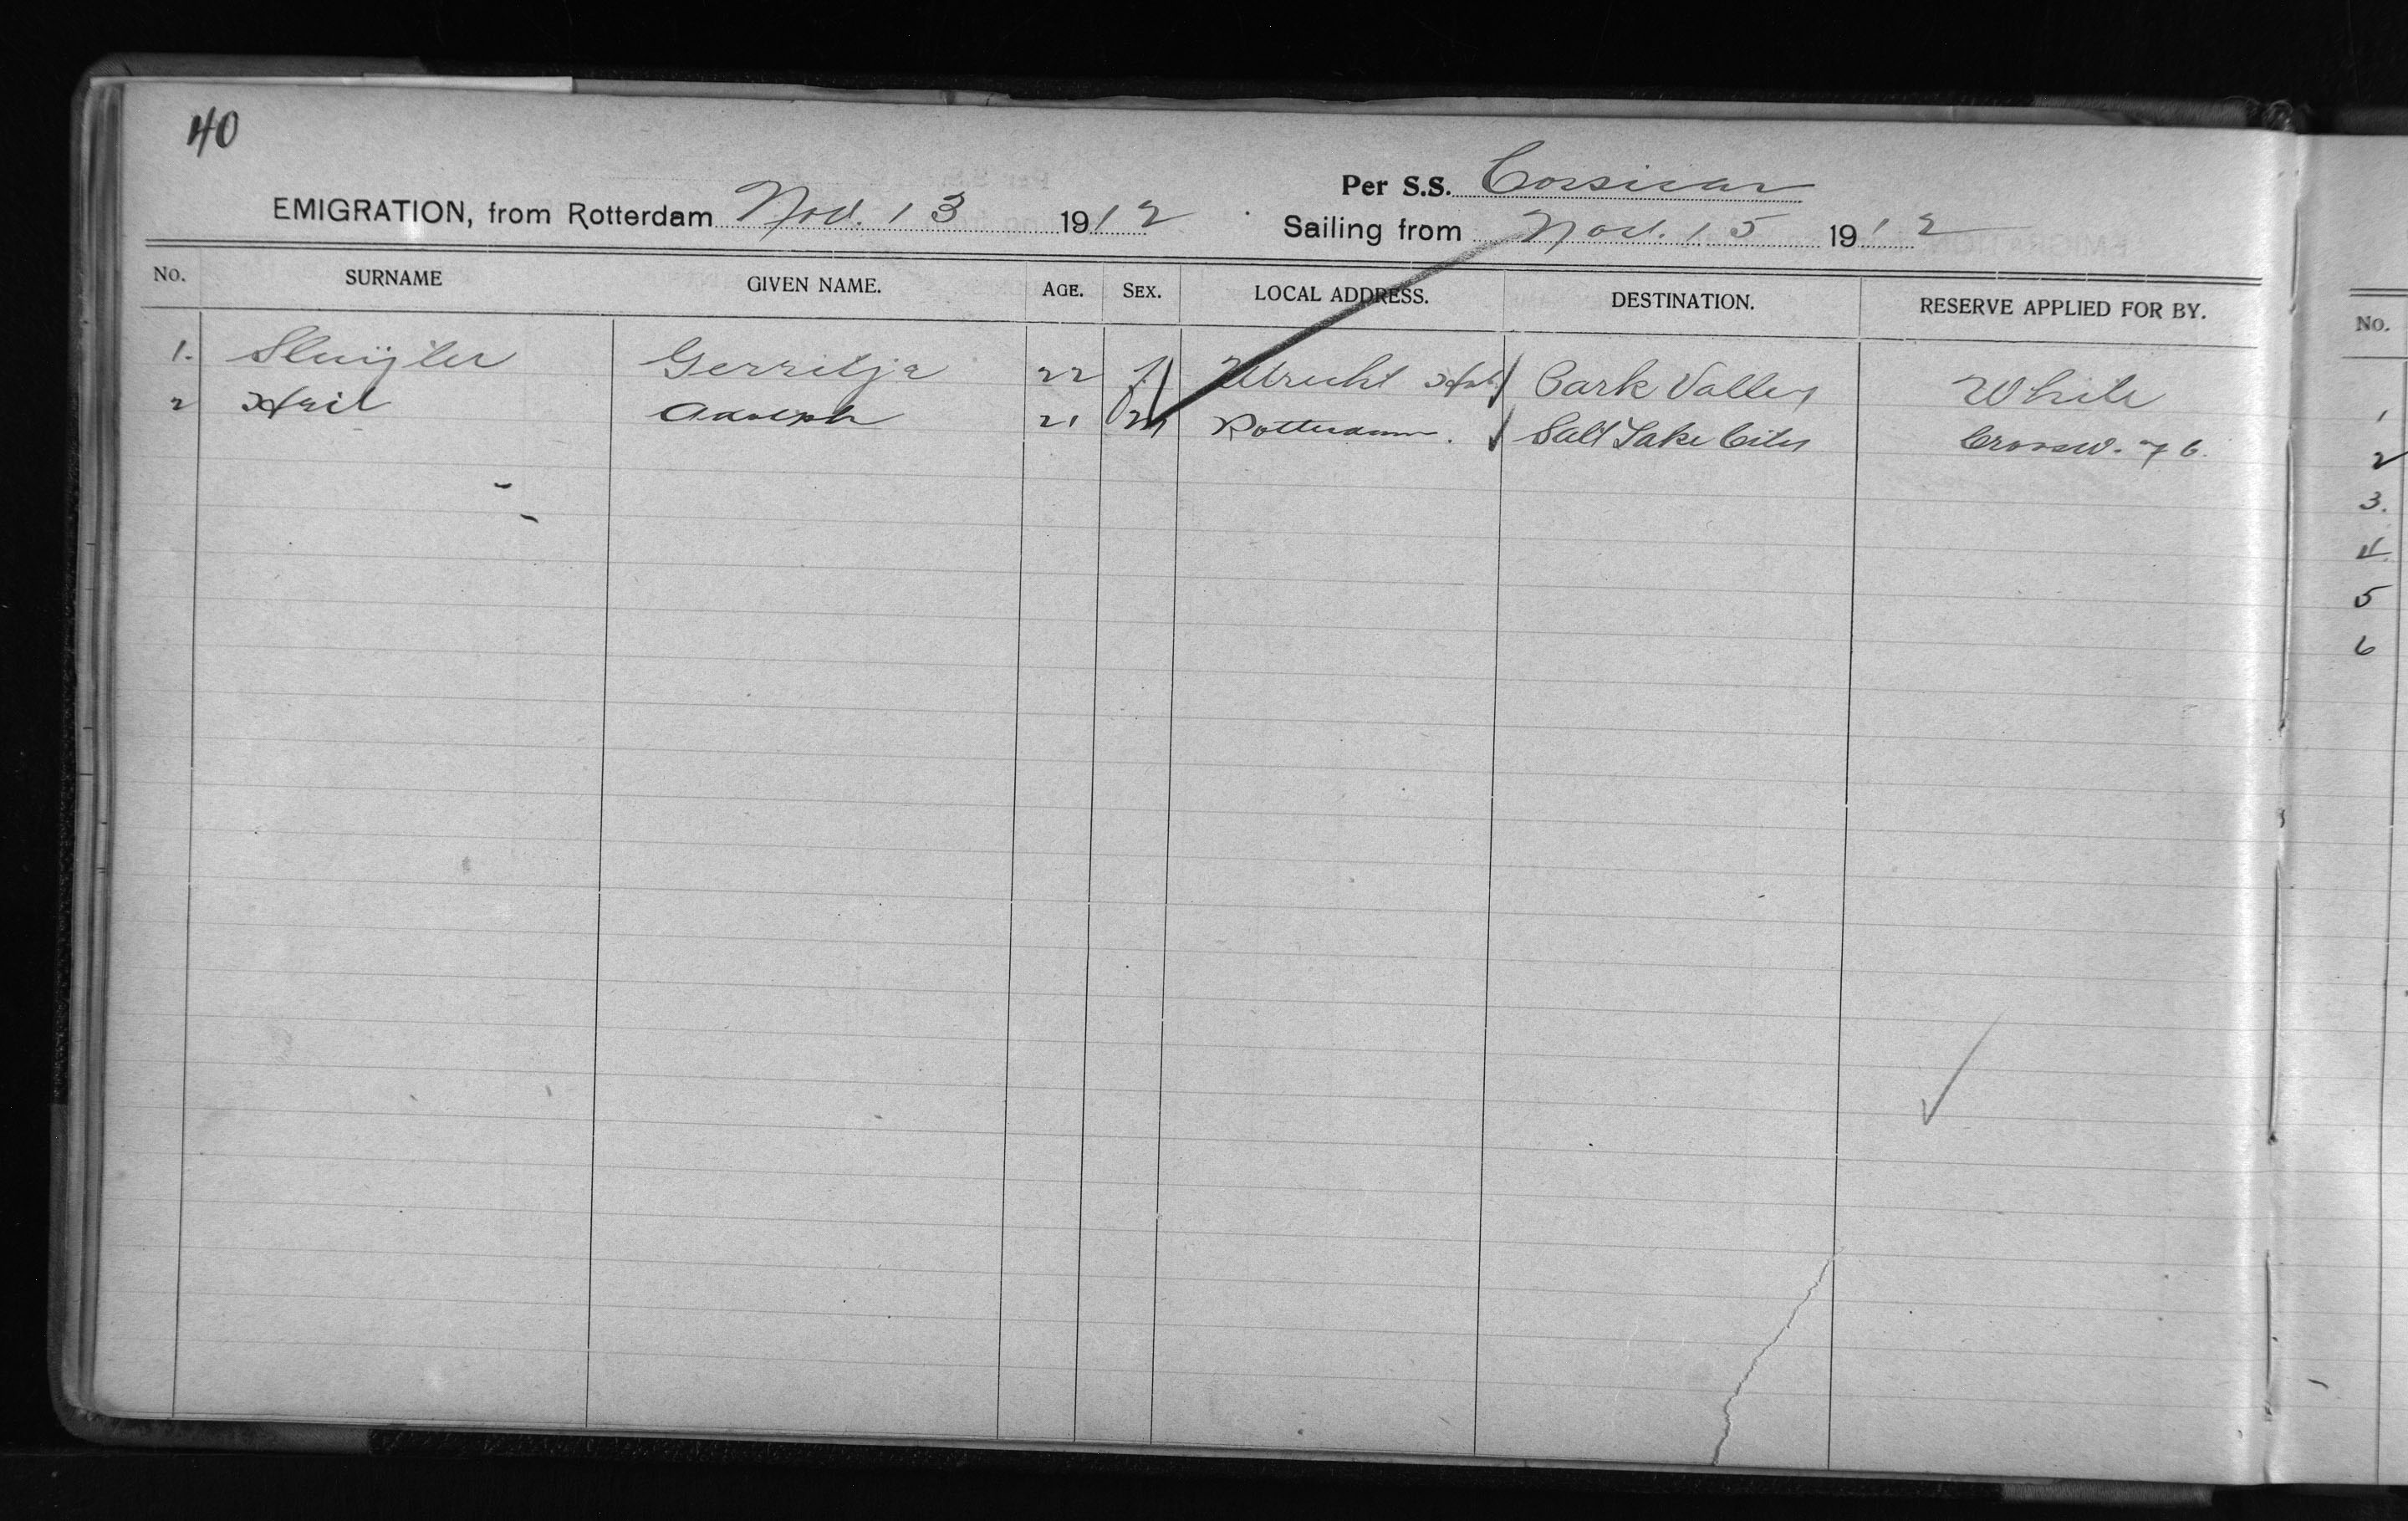 40
Per S.S. Corsican
EMIGRATION, from Rotterdam Nov. 13 1912
Sailing from Nov. 15 1912
No. SURNAME GIVEN NAME. AGE. SEX. LOCAL ADDRESS. DESTINATION. RESERVE APPLIED FOR BY.
1. Sluijter Gerritje 22 f Utrecht Park Valley White
2 Heil Adolph 21 m Rotterdam. Salt Lake City
No.
1
2
3.
4
5
6